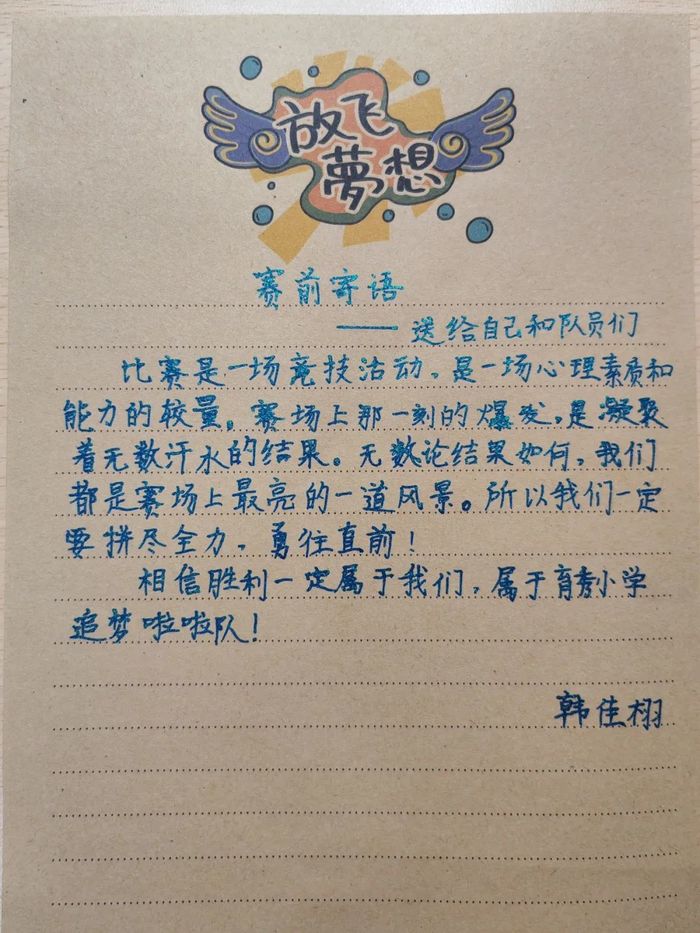 放飞
夢想
赛前寄语
——送给自己和队员们
比赛是一场竞技活动，是一场心理素质和
能力的较量。赛场上那一刻的爆发，是凝聚
着无数汗水的结果。无数论结果如何，我们
都是赛场上最亮的一道风景。所以我们一定
要拼尽全力，勇往直前！
相信胜利一定属于我们，属于育秀小学
追梦啦啦队！
韩佳栩